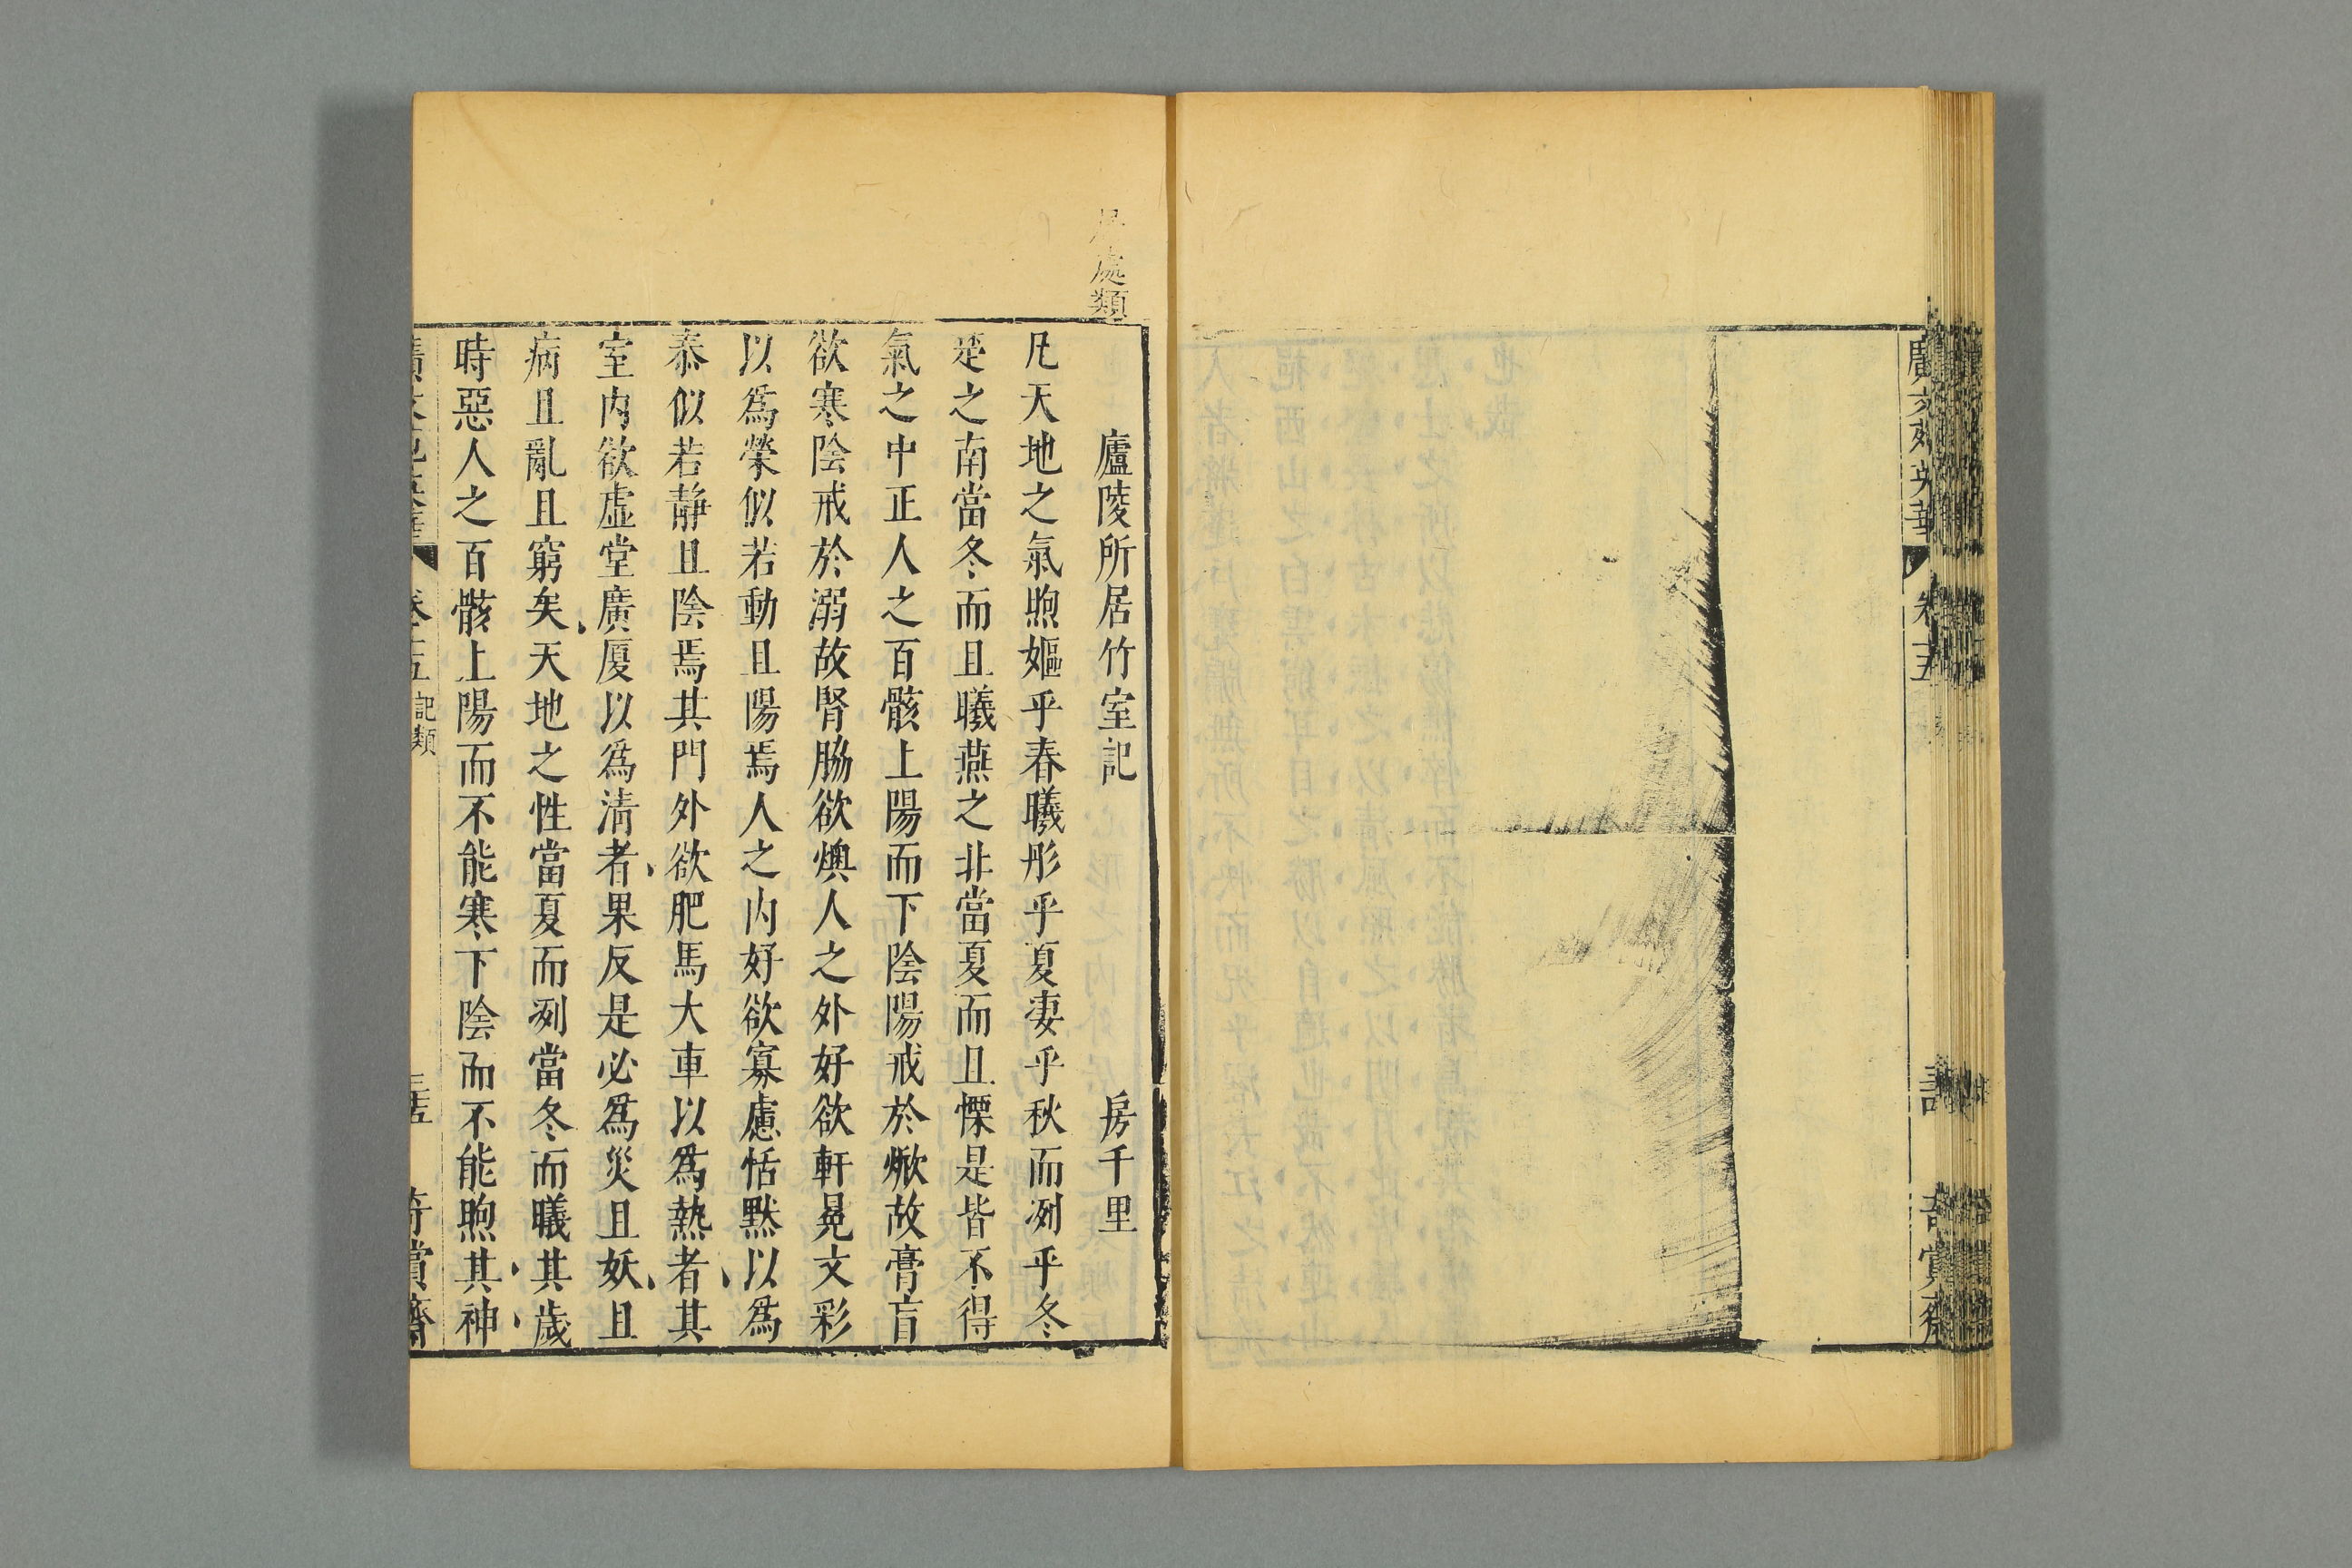 廣文苑英華 卷十五
賞齋
居處類
廬陵所居竹室記 房千里
凡天地之氣煦嫗乎春曦彤乎夏凄乎秋而冽乎冬
楚之南當冬而且曦燕之北當夏而且慄是皆不得
氣之中正人之百骸上陽而下陰陽戒於㷾故膏肓
欲寒陰戒於溺故腎脇欲燠人之外好欲軒冕文彩
以爲榮似若動且陽焉人之内好欲寡慮恬默以爲
泰似若静且陰焉其門外欲肥馬大車以爲熱者其
室内欲虛堂廣厦以爲淸者果反是必爲災且妖且
病且亂且窮矣天地之性當夏而冽當冬而曦其歲
時惡人之百骸上陽而不能寒下陰而不能煦其神
記類